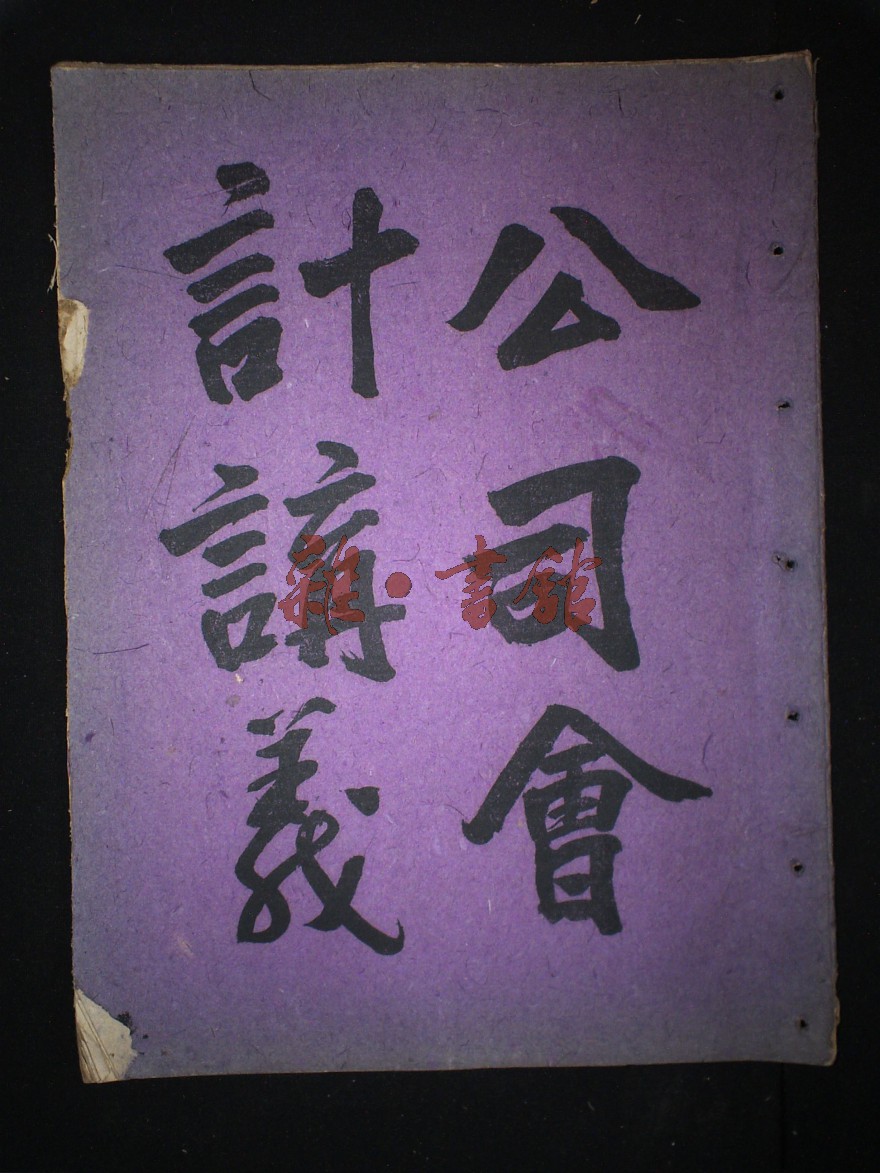 公司會
計講義
雜·書館